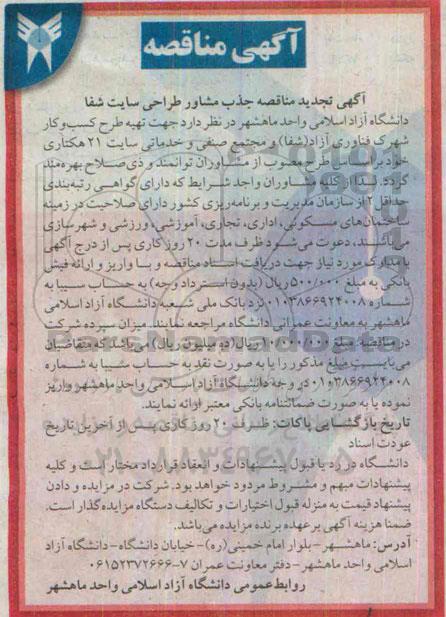 آگهی مناقصه
آگهی تجدید مناقصه جذب مشاور طراحی سایت شفا
دانشگاه آزاد اسلامی واحد ماهشهر در نظر دارد جهت تهیه طرح کسب‌وکار
شهرک فناوری آزاد(شفا) و مجتمع صنفی و خدماتی سایت ۲۱ هکتاری
خود براساس طرح مصوب از مشاوران توانمند و ذی‌صلاح بهره‌مند
گردد. لذا از کلیه مشاوران واجد شرایط که دارای گواهی رتبه‌بندی
حداقل ۲ از سازمان مدیریت و برنامه‌ریزی کشور دارای صلاحیت در زمینه
ساختمان‌های مسکونی، اداری، تجاری، آموزشی، ورزشی و شهرسازی
می‌باشند، دعوت می‌شود ظرف مدت ۲۰ روز کاری پس از درج آگهی
با مدارک مورد نیاز جهت دریافت اسناد مناقصه و با واریز و ارائه فیش
بانکی به مبلغ ۵۰۰/۰۰۰ ریال (بدون استرداد وجه) به حساب سیبا به
شماره ۰۱۰۳۸۶۶۹۲۴۰۰۸ نزد بانک ملی شعبه دانشگاه آزاد اسلامی
ماهشهر به معاونت عمرانی دانشگاه مراجعه نمایند. میزان سپرده شرکت
در مناقصه: مبلغ ۱۰/۰۰۰/۰۰۰ ریال (ده میلیون ریال) می‌باشد که متقاضیان
می‌بایست مبلغ مذکور را یا به صورت نقد به حساب سیبا به شماره
۰۱۰۳۸۶۶۹۲۴۰۰۸ در وجه دانشگاه آزاد اسلامی واحد ماهشهر واریز
نموده یا به صورت ضمانتنامه بانکی معتبر ارائه نمایند.
تاریخ بازگشایی پاکات: ظرف ۲۰ روز کاری پس از آخرین تاریخ
عودت اسناد
دانشگاه در رد یا قبول پیشنهادات و انعقاد قرارداد مختار است و کلیه
پیشنهادات مبهم و مشروط مردود خواهد بود. شرکت در مزایده و دادن
پیشنهاد قیمت به منزله قبول اختیارات و تکالیف دستگاه مزایده گذار است.
ضمنا هزینه آگهی برعهده برنده مزایده می‌باشد.
آدرس: ماهشهر-بلوار امام خمینی(ره)-خیابان دانشگاه-دانشگاه آزاد
اسلامی واحد ماهشهر-دفتر معاونت عمران ۷-۰۶۱۵۲۳۷۲۶۶۶
روابط عمومی دانشگاه آزاد اسلامی واحد ماهشهر